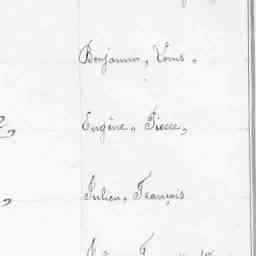 Benjamin, Louis,
Eugène, Pierre,
Julien, François